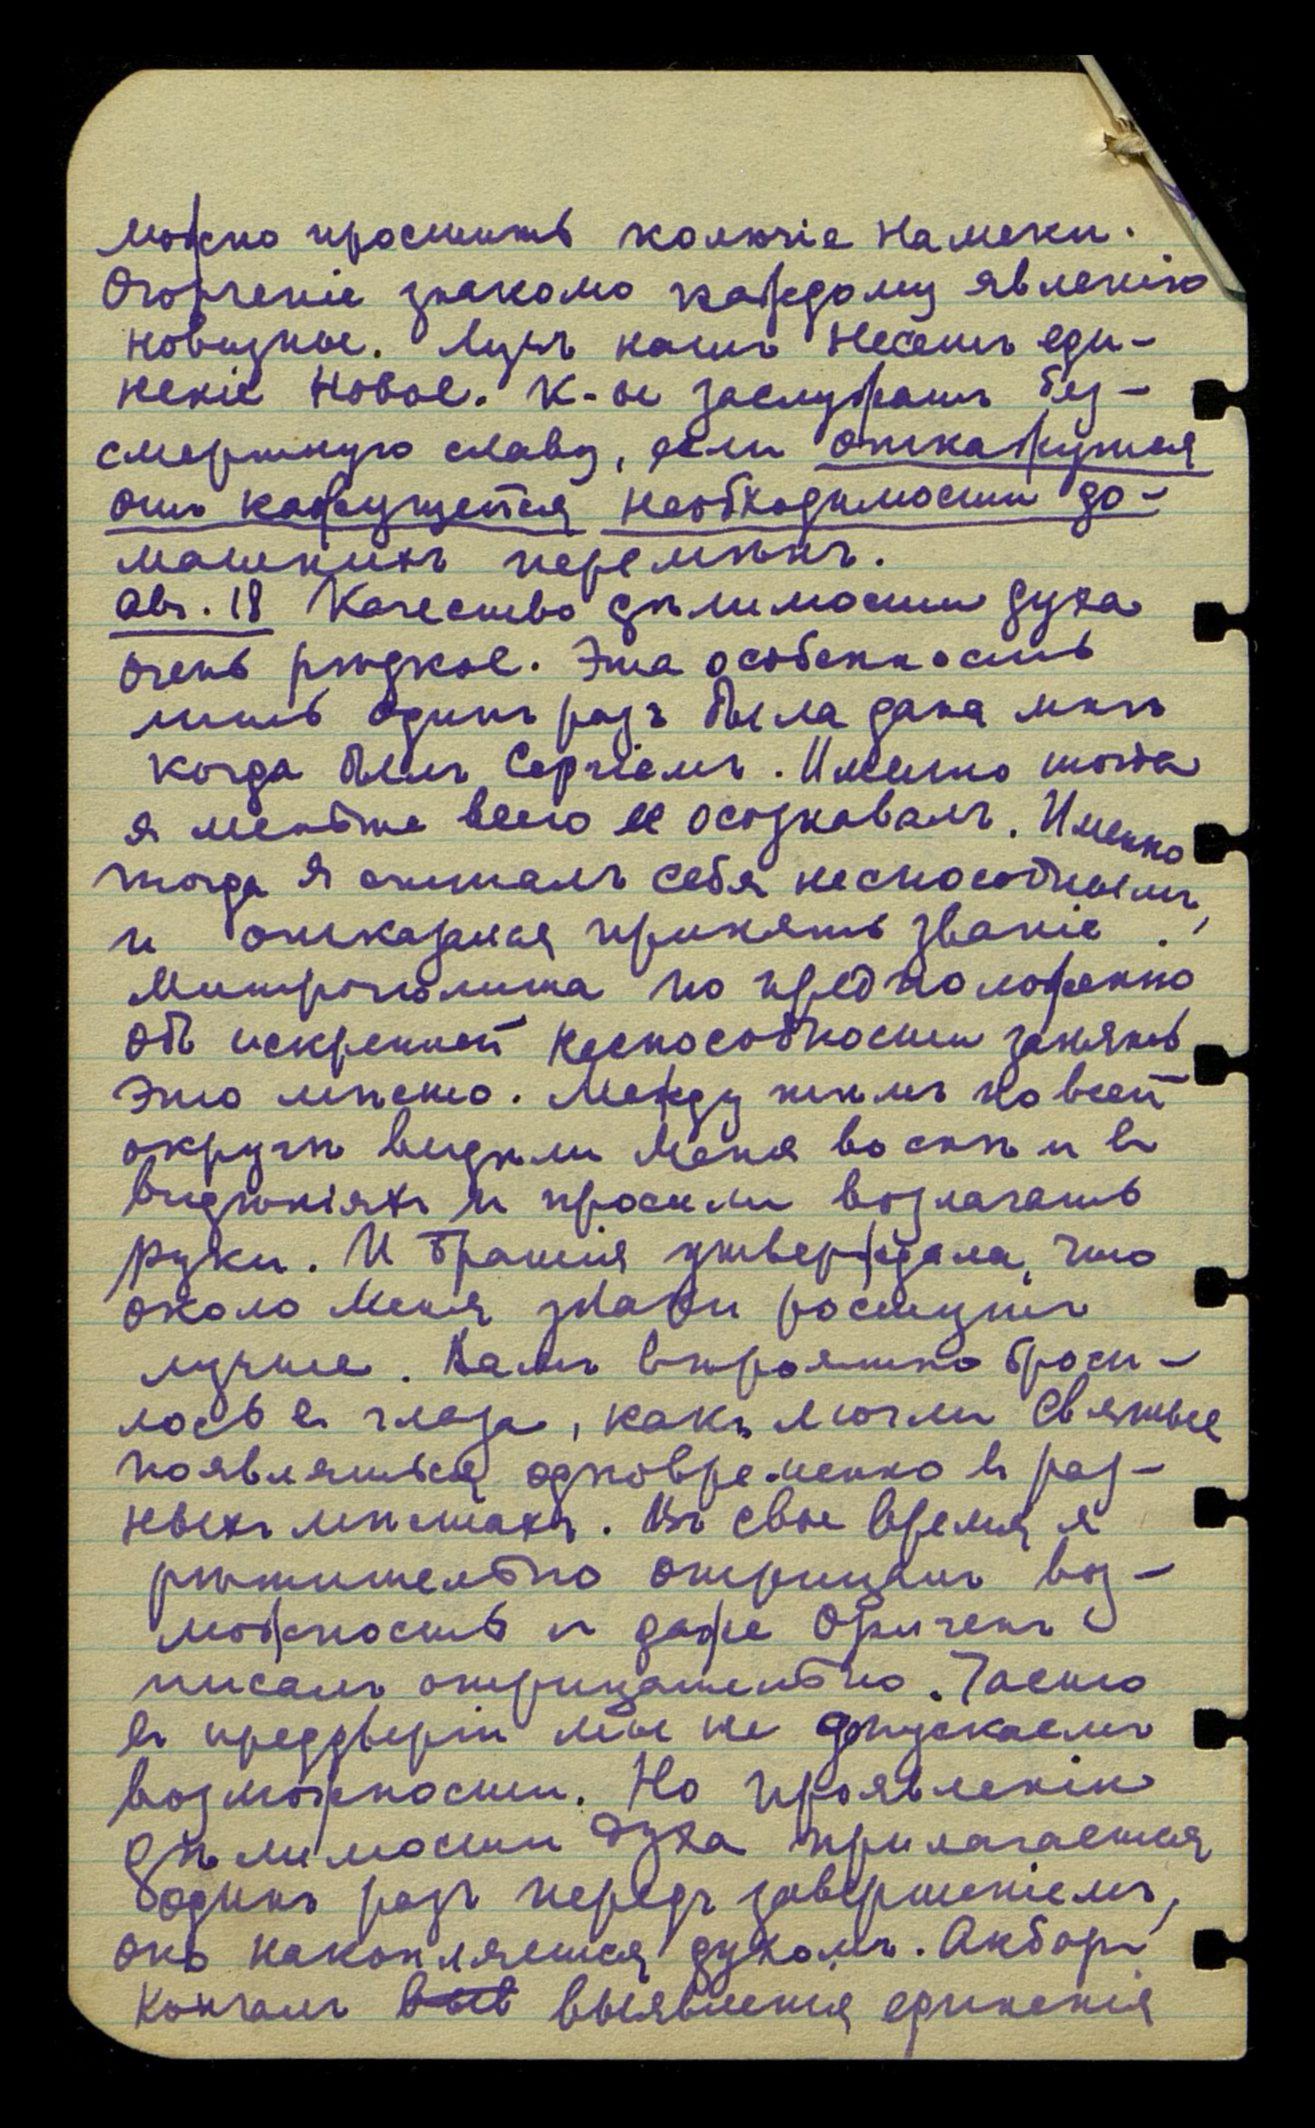 можно простить колючіе намеки.
Огорченіе знакомо каждому явленію
новизны. Лучъ нашъ несетъ еди-
неніе Новое. К-ы заслужатъ без-
смертную славу, если откажутся
отъ кажущейся необходимости до-
машнихъ перемѣнъ.
Авг. 18 Качество дѣлимости духа
очень рѣдкое. Эта особенность
лишь одинъ разъ была дана мнѣ
когда былъ Сергіемъ. Именно тогда
я меньше всего ее осознавалъ. Именно
тогда я считалъ себя неспособнымъ,
и отказался принять званіе
Митрополита по предположенію
объ искренней неспособности занять
это мѣсто. Между тѣмъ по всей
округѣ видѣли Меня во снѣ и въ
видѣніяхъ и просили возлагать
руки. И братія утверждала, что
около Меня злаки растутъ
лучше. Вамъ вѣроятно броси-
лось въ глаза, какъ могли Святые
появляться одновременно въ раз-
ныхъ мѣстахъ. Въ свое время я
рѣшительно отрицалъ воз-
можность и даже Оригенъ
писалъ отрицательно. Часто
въ преддверіи мы не допускаемъ
возможности. Но проявленіе
дѣлимости духа прилагается
одинъ разъ передъ завершеніемъ,
оно накопляется духомъ. Акбаръ
кончалъ выявленія единенія